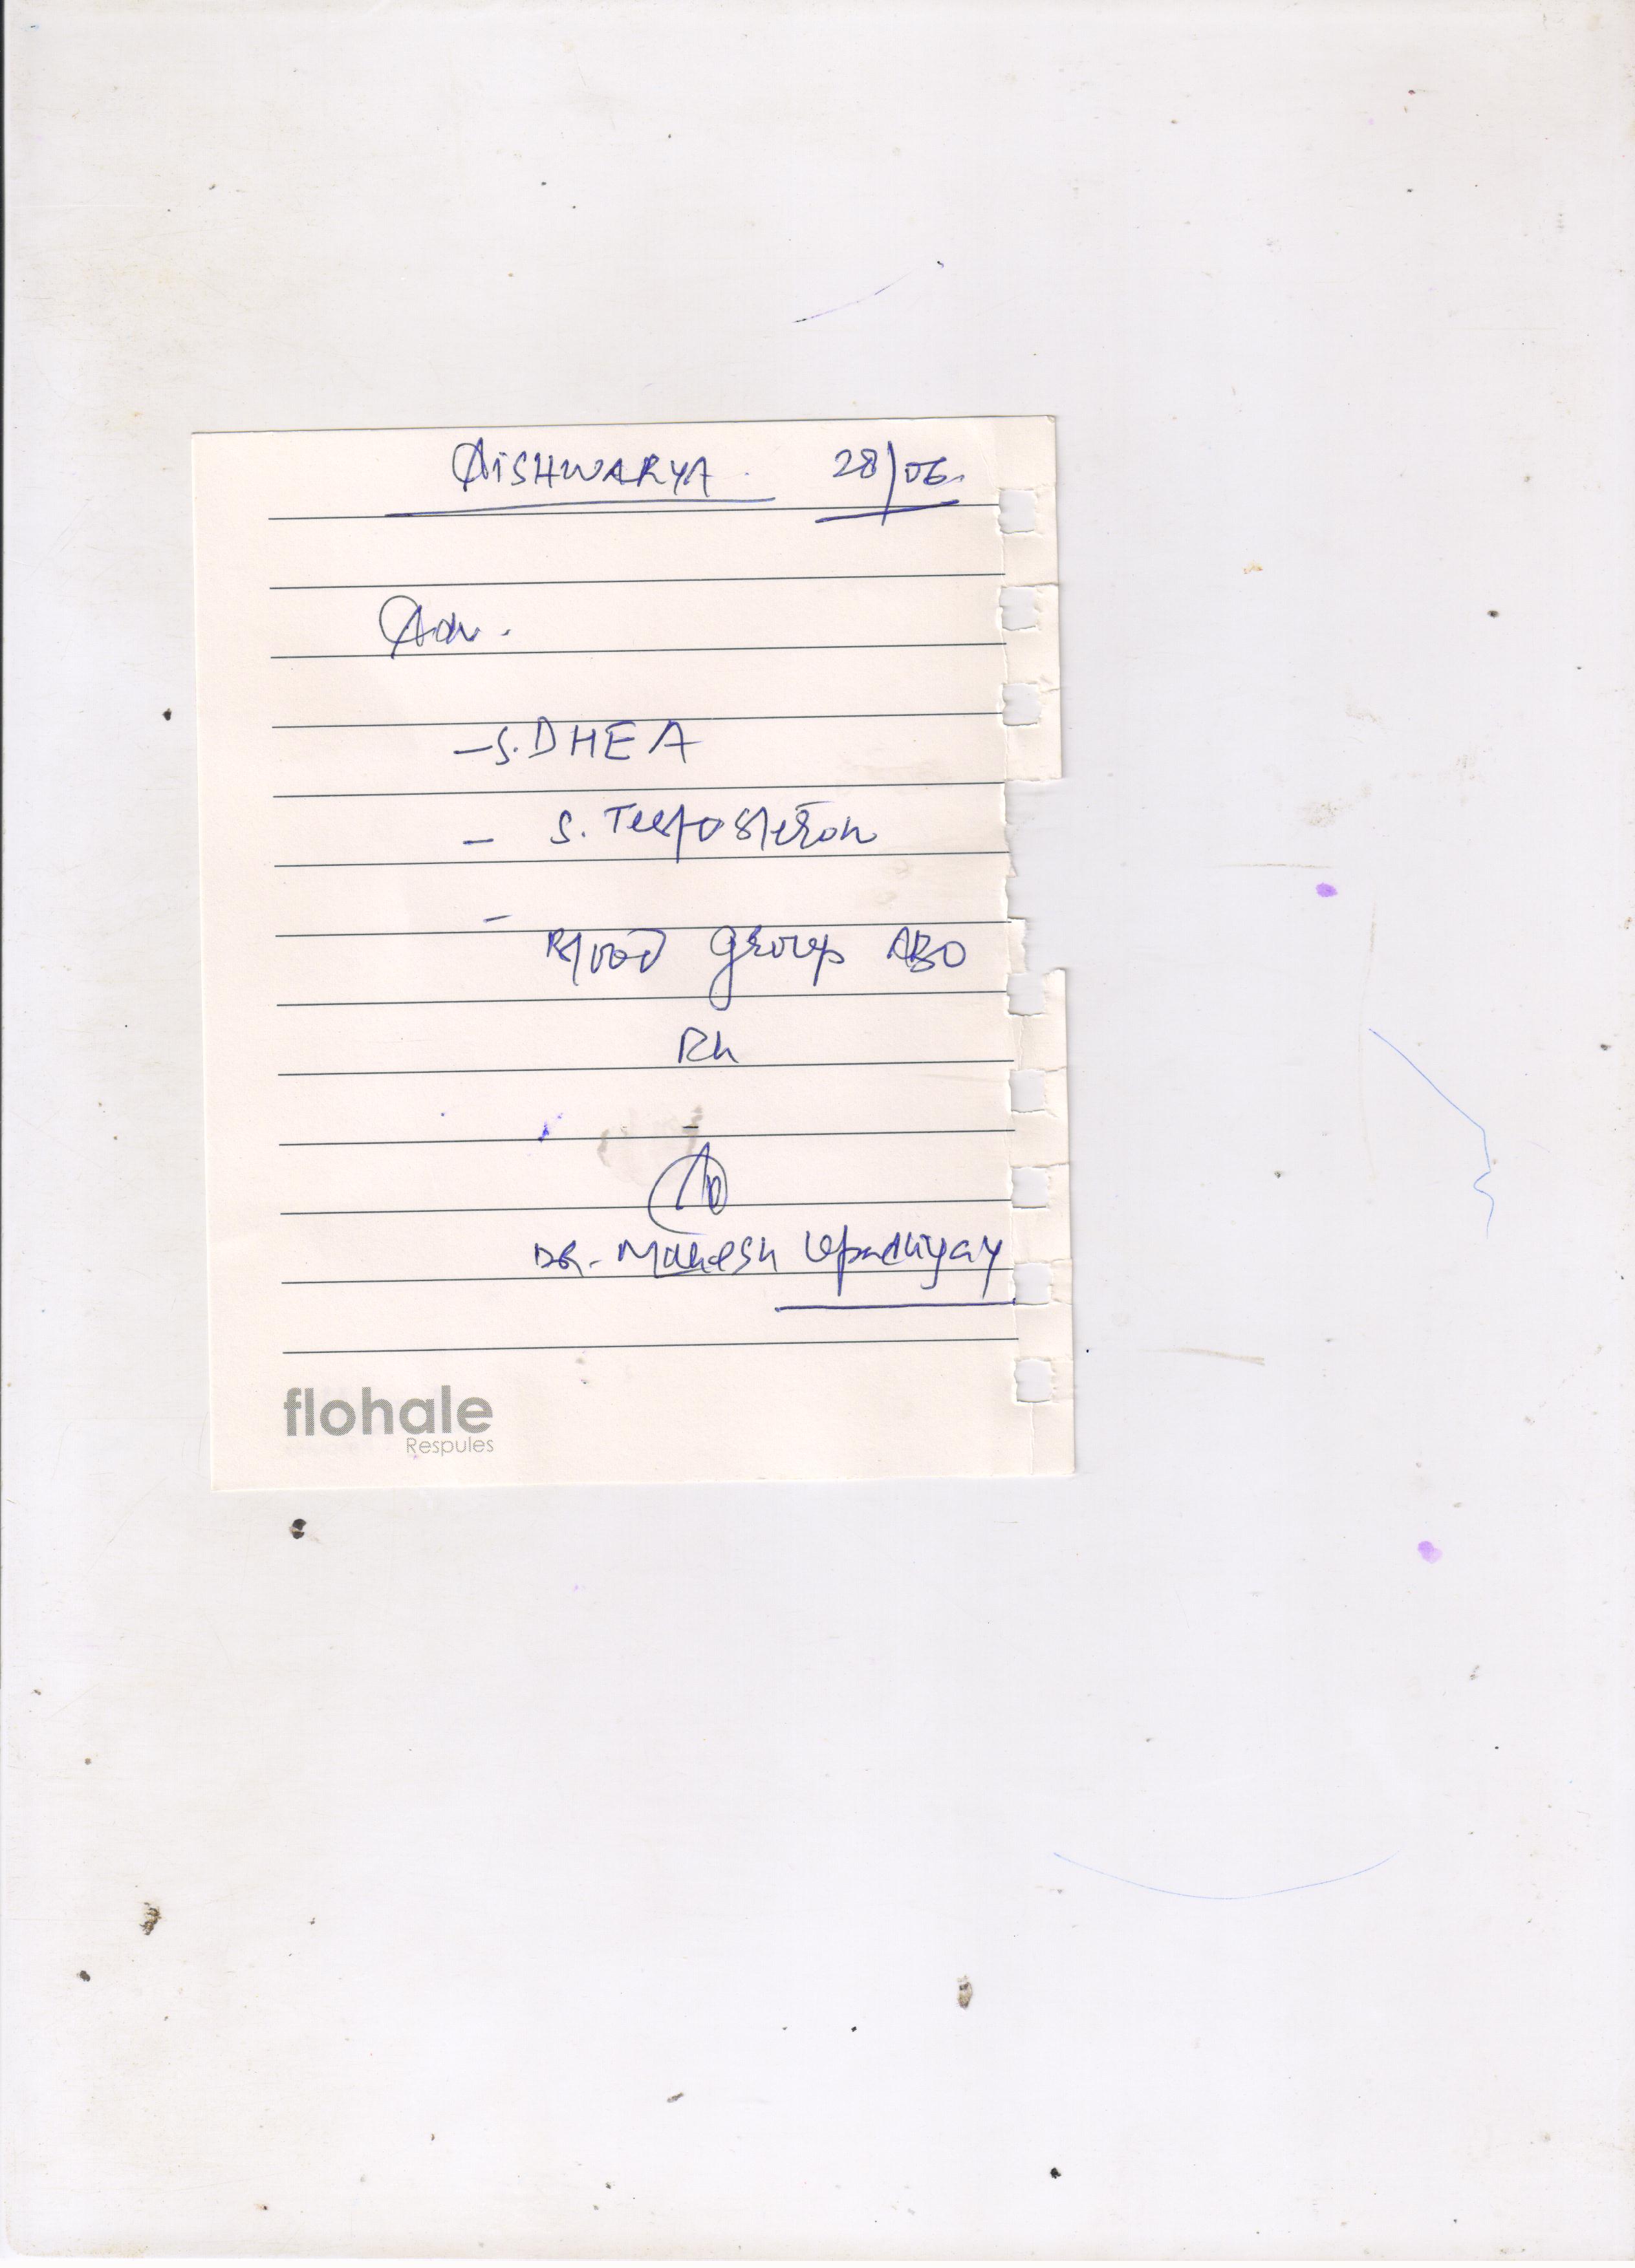 AISHWARYA. 28/06.
Adv.
- S. DHEA
- S. Testosteron
- Blood group ABO
Rh
DR. Mahesh Upadhyay
flohale
Respules